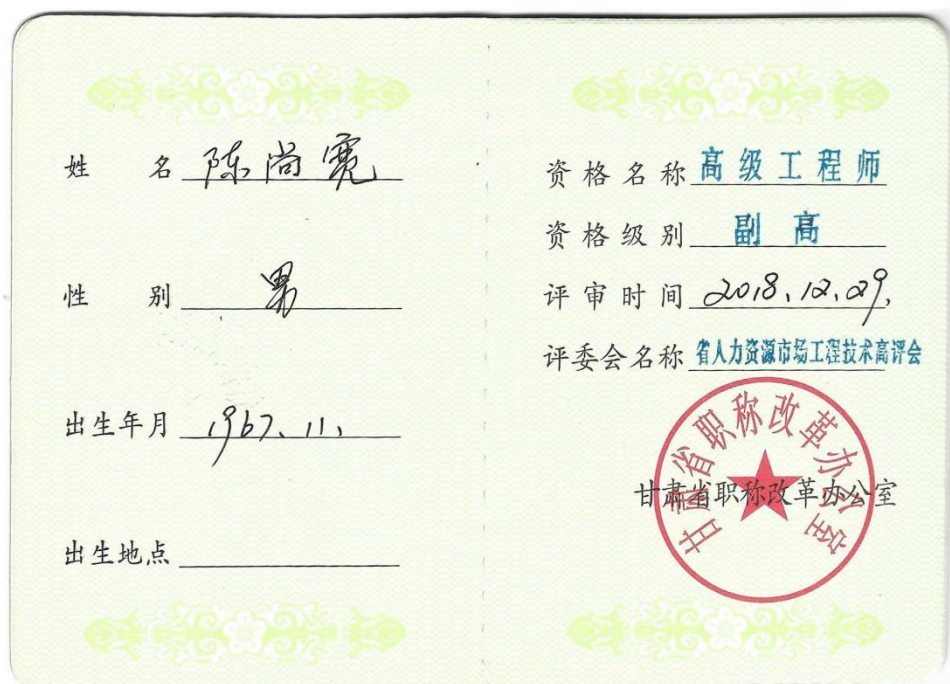 姓 名 陈尚宽
性 别 男
出生年月 1967、11、
出生地点
资格名称 高级工程师
资格级别 副高
评审时间 2018、12、29、
评委会名称 省人力资源市场工程技术高评会
甘肃省职称改革办公室
甘肃省职称改革办公室